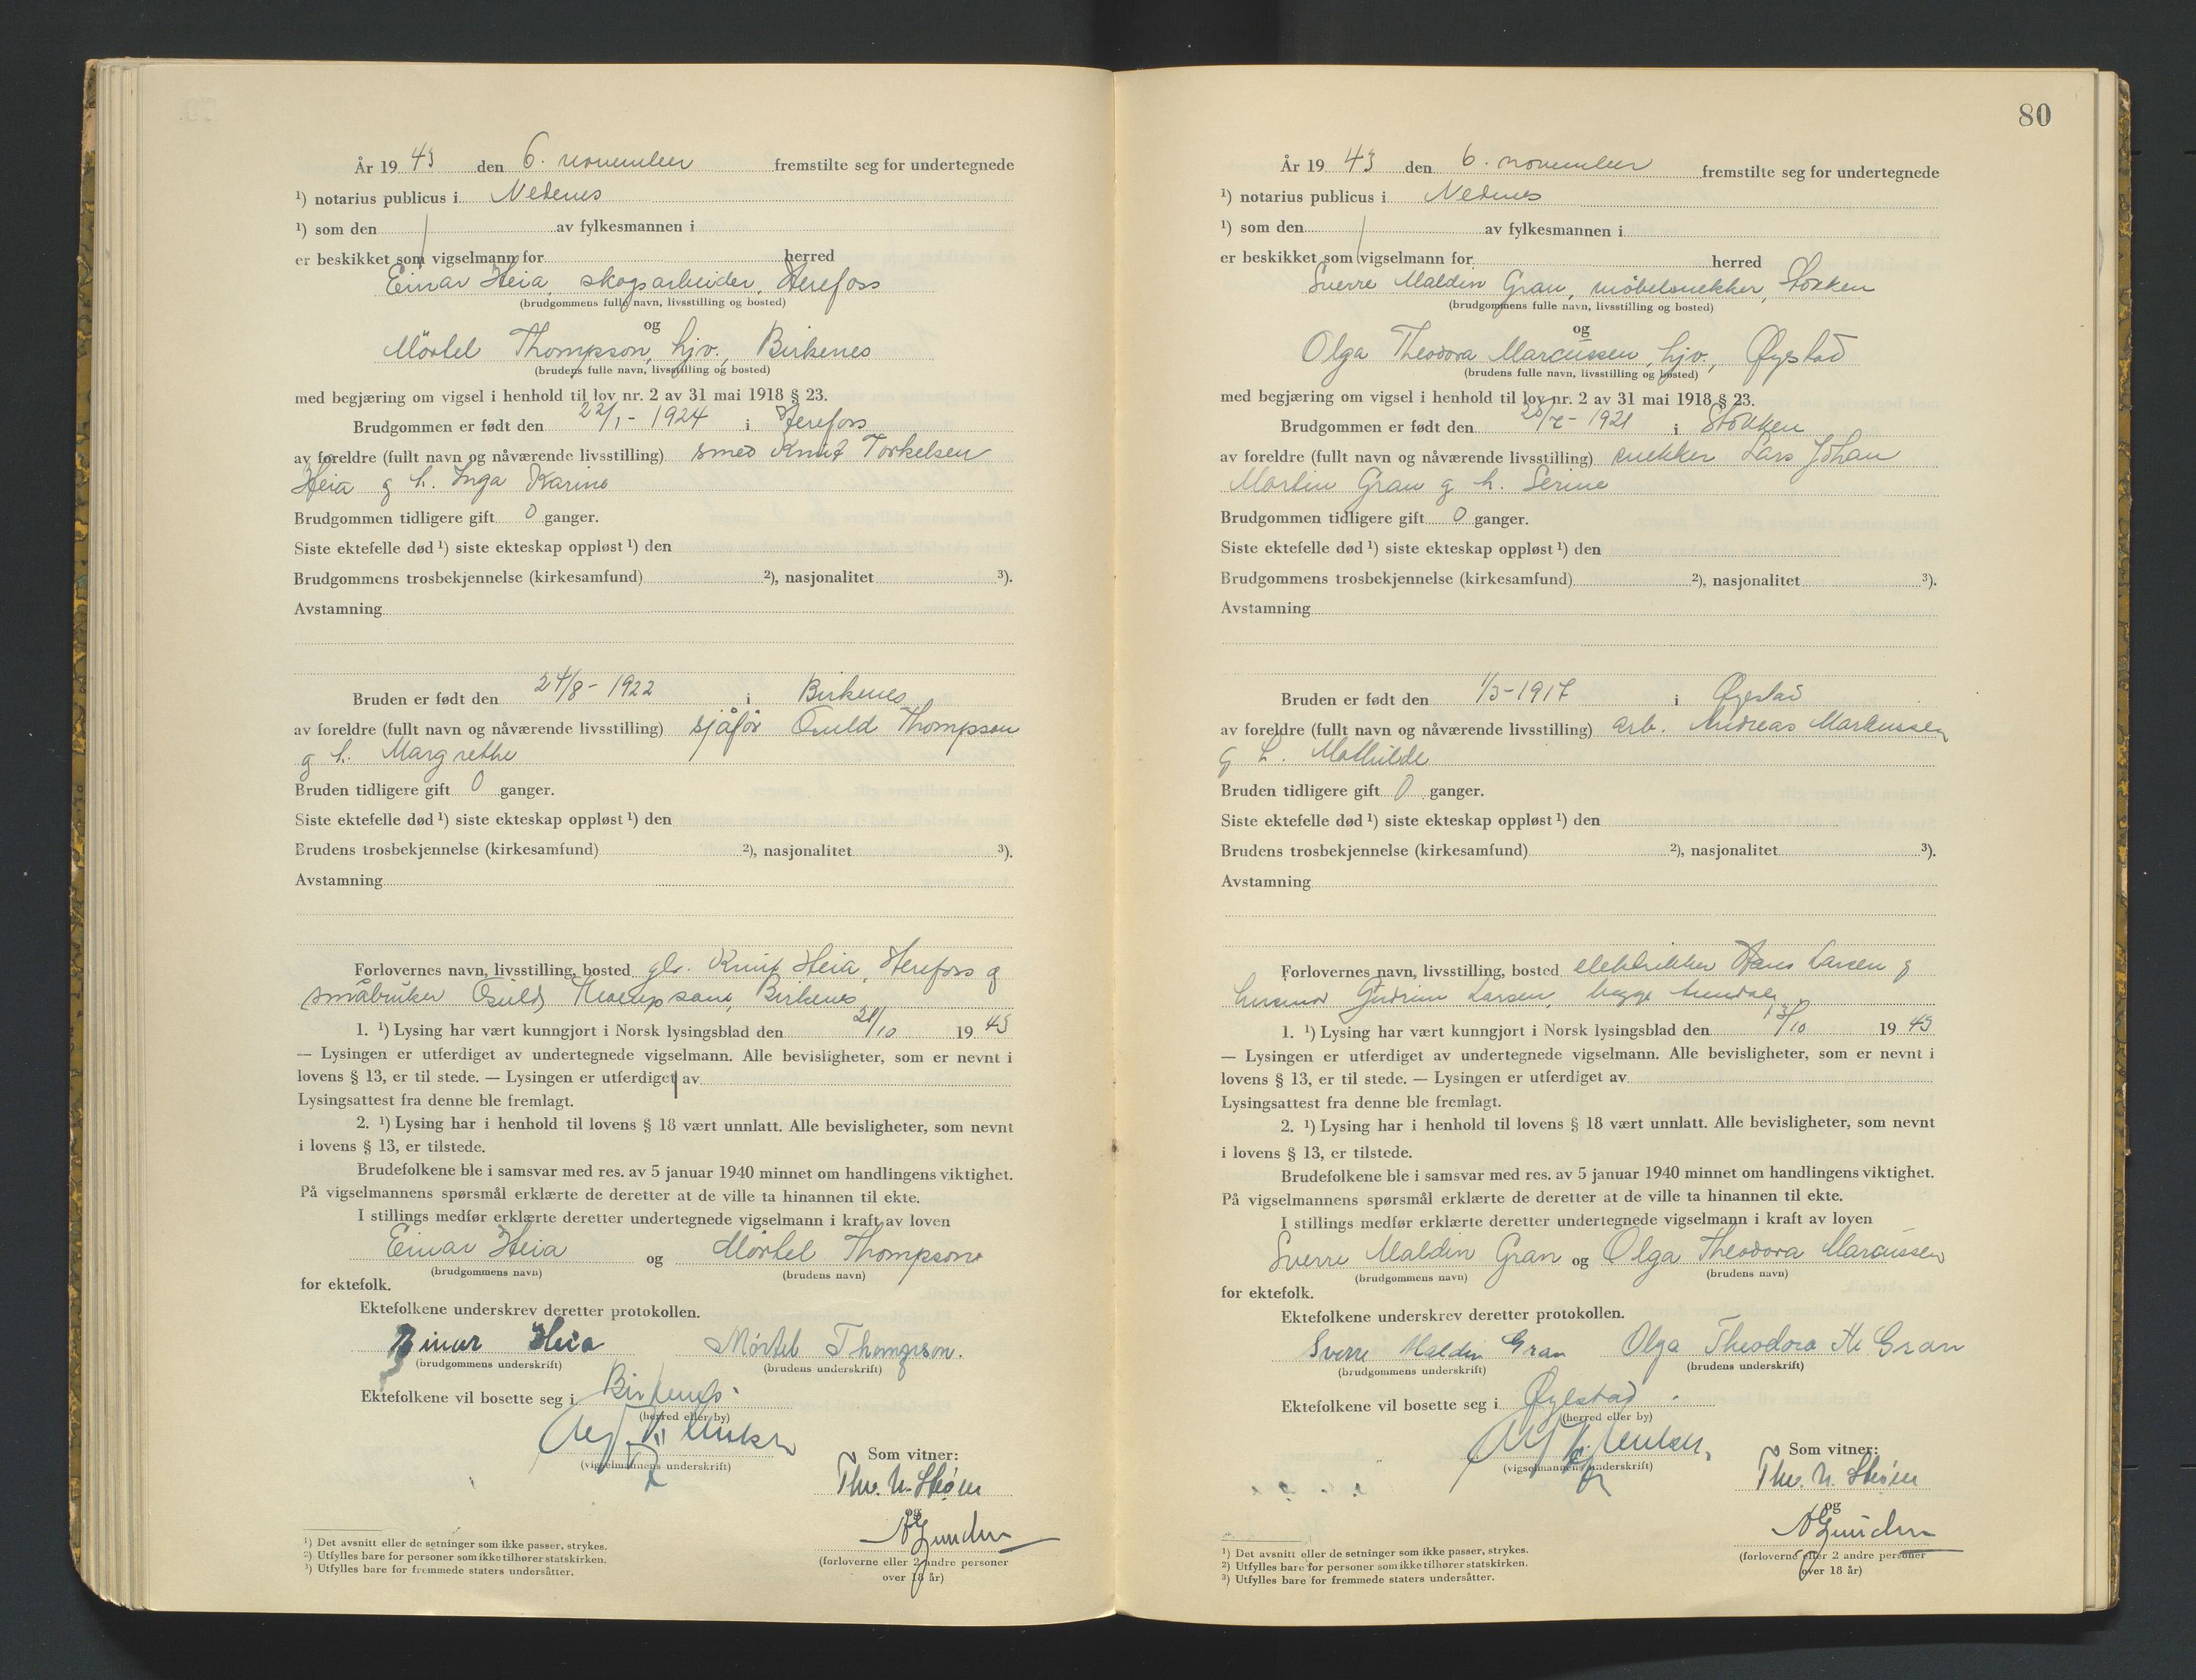 År 19 43 den 6. november fremstilte seg for undertegnede
¹) notarius publicus i Nedenes
¹) som den av fylkesmannen i
er beskikket som vigselmann for herred
Einar Heia, skogsarbeider, Herefoss
(brudgommens fulle navn, livsstilling og bosted)
og
Mörtel Thompson, hjv., Birkenes
(brudens fulle navn, livsstilling og bosted)
med begjæring om vigsel i henhold til lov nr. 2 av 31 mai 1918 § 23.
Brudgommen er født den 22/1- 1924 i Herefoss
av foreldre (fullt navn og nåværende livsstilling) smed Knut Torkelsen
Heia g h. Inga Karine
Brudgommen tidligere gift 0 ganger.
Siste ektefelle død ¹) siste ekteskap oppløst ¹) den
Brudgommens trosbekjennelse (kirkesamfund) ²), nasjonalitet ³).
Avstamning
Bruden er født den 24/8- 1922 i Birkenes
av foreldre (fullt navn og nåværende livsstilling) sjåfør Osuld Thompson
g h. Margrethe
Bruden tidligere gift 0 ganger.
Siste ektefelle død ¹) siste ekteskap oppløst ¹) den
Brudens trosbekjennelse (kirkesamfund) ²), nasjonalitet ³).
Avstamning
Forlovernes navn, livsstilling, bosted Knut Heia, Herefoss g
småbruker Osuld Thompson, Birkenes
1. ¹) Lysing har vært kunngjort i Norsk lysingsblad den /10 19 43
— Lysingen er utferdiget av undertegnede vigselmann. Alle bevisligheter, som er nevnt i
lovens § 13, er til stede. — Lysingen er utferdiget av
Lysingsattest fra denne ble fremlagt.
2. ¹) Lysing har i henhold til lovens § 18 vært unnlatt. Alle bevisligheter, som nevnt
i lovens § 13, er tilstede.
Brudefolkene ble i samsvar med res. av 5 januar 1940 minnet om handlingens viktighet.
På vigselmannens spørsmål erklærte de deretter at de ville ta hinannen til ekte.
I stillings medfør erklærte deretter undertegnede vigselmann i kraft av loven
Einar Heia og Mörtel Thompson
(brudgommens navn) (brudens navn)
for ektefolk.
Ektefolkene underskrev deretter protokollen.
Einar Heia Mörtel Thompson.
(brudgommens underskrift) (brudens underskrift)
Ektefolkene vil bosette seg i Birkenes.
(herred eller by)
(vigselmannens underskrift)
Som vitner:
Thv. N. Strøm
og
(forloverne eller 2 andre personer
over 18 år)
¹) Det avsnitt eller de setninger som ikke passer, strykes.
²) Utfylles bare for personer som ikke tilhører statskirken.
³) Utfylles bare for fremmede staters undersåtter.
80
År 19 43 den 6. november fremstilte seg for undertegnede
¹) notarius publicus i Nedenes
¹) som den av fylkesmannen i
er beskikket som vigselmann for herred
Sverre Maldin Gran, møbelsnekker, Stokken
(brudgommens fulle navn, livsstilling og bosted)
og
Olga Theodora Marcussen, hjv., Øyestad
(brudens fulle navn, livsstilling og bosted)
med begjæring om vigsel i henhold til lov nr. 2 av 31 mai 1918 § 23.
Brudgommen er født den 1921 i Stokken
av foreldre (fullt navn og nåværende livsstilling) snekker Lars Johan
Martin Gran g h. Serine
Brudgommen tidligere gift 0 ganger.
Siste ektefelle død ¹) siste ekteskap oppløst ¹) den
Brudgommens trosbekjennelse (kirkesamfund) ²), nasjonalitet ³).
Avstamning
Bruden er født den 1/3-1917 i Øyestad
av foreldre (fullt navn og nåværende livsstilling) arb. Andreas Markussen
g h. Mathilde
Bruden tidligere gift 0 ganger.
Siste ektefelle død ¹) siste ekteskap oppløst ¹) den
Brudens trosbekjennelse (kirkesamfund) ²), nasjonalitet ³).
Avstamning
Forlovernes navn, livsstilling, bosted elektrikker Hans Larsen g
husmor Gudrun Larsen, begge Arendal
1. ¹) Lysing har vært kunngjort i Norsk lysingsblad den 13/10 19 43
— Lysingen er utferdiget av undertegnede vigselmann. Alle bevisligheter, som er nevnt i
lovens § 13, er til stede. — Lysingen er utferdiget av
Lysingsattest fra denne ble fremlagt.
2. ¹) Lysing har i henhold til lovens § 18 vært unnlatt. Alle bevisligheter, som nevnt
i lovens § 13, er tilstede.
Brudefolkene ble i samsvar med res. av 5 januar 1940 minnet om handlingens viktighet.
På vigselmannens spørsmål erklærte de deretter at de ville ta hinannen til ekte.
I stillings medfør erklærte deretter undertegnede vigselmann i kraft av loven
Sverre Maldin Gran og Olga Theodora Marcussen
(brudgommens navn) (brudens navn)
for ektefolk.
Ektefolkene underskrev deretter protokollen.
Sverre Maldin Gran Olga Theodora M Gran
(brudgommens underskrift) (brudens underskrift)
Ektefolkene vil bosette seg i Øyestad.
(herred eller by)
(vigselmannens underskrift)
Som vitner:
Thv. N. Strøm
og
(forloverne eller 2 andre personer
over 18 år)
¹) Det avsnitt eller de setninger som ikke passer, strykes.
²) Utfylles bare for personer som ikke tilhører statskirken.
³) Utfylles bare for fremmede staters undersåtter.